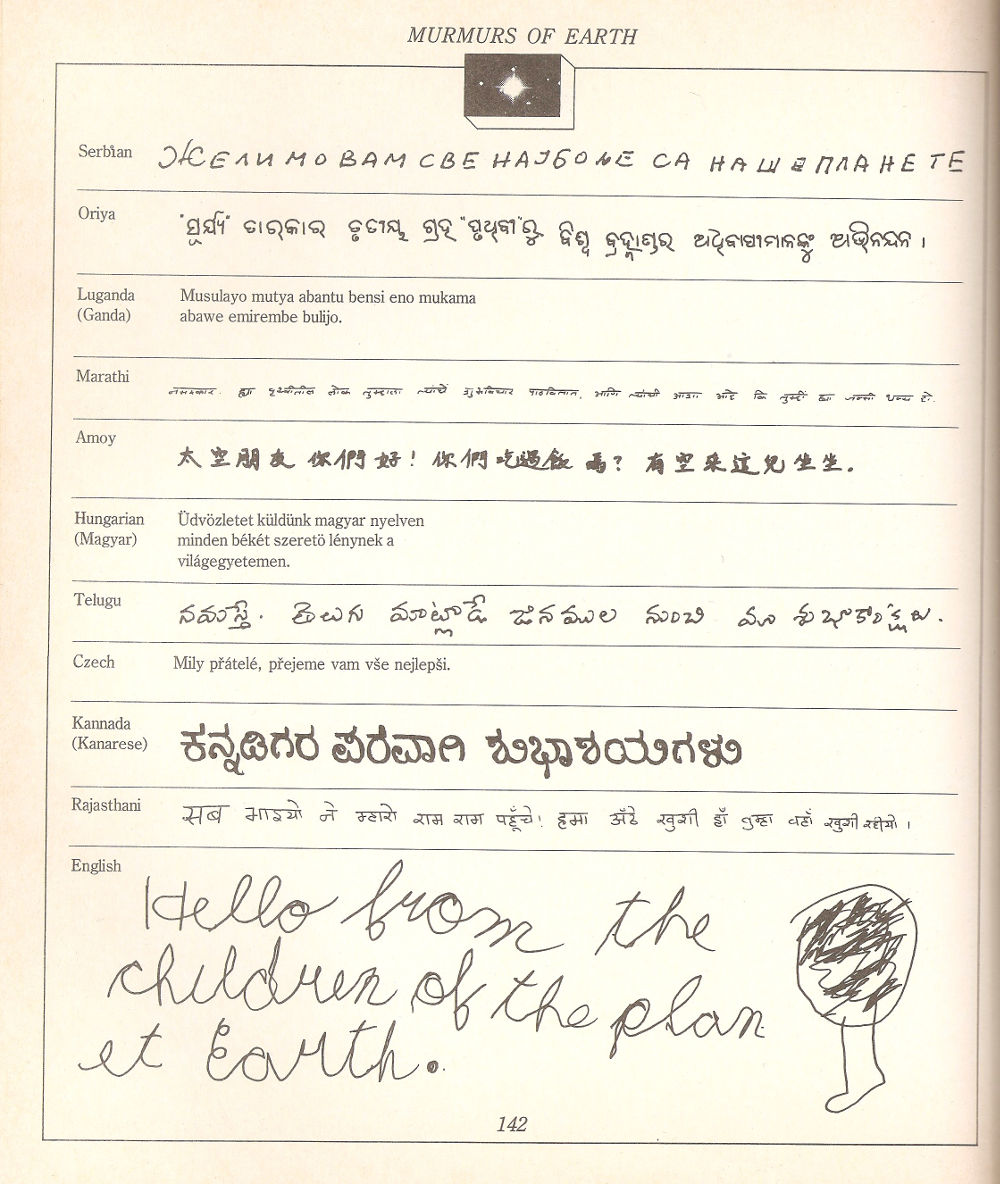 MURMURS OF EARTH
Serbian
ЖЕЛИМО ВАМ СВЕ НАЈБОЉЕ СА НАШЕ ПЛАНЕТЕ
Oriya
"ସୂର୍ଯ୍ୟ" ତାରକାର ତୃତୀୟ ଗ୍ରହ "ପୃଥିବୀ"ରୁ ବିଶ୍ୱ ବ୍ରହ୍ମାଣ୍ଡର ଅଧିବାସୀମାନଙ୍କୁ ଅଭିନନ୍ଦନ ।
Luganda
(Ganda)
Musulayo mutya abantu bensi eno mukama
abawe emirembe bulijo.
Marathi
नमस्कार. ह्या पृथ्वीतील लोक तुम्हाला त्यांचे शुभविचार पाठवितात, आणि त्यांची आशा आहे कि तुम्ही ह्या जन्मी धन्य हो.
Amoy
太空朋友 你們好! 你們吃過飯嗎? 有空来这兒坐坐.
Hungarian
(Magyar)
Üdvözletet küldünk magyar nyelven
minden békét szeretö lénynek a
világegyetemen.
Telugu
నమస్తే. తెలుగు మాట్లాడే జనముల నుంచి మా శుభాకాంక్షలు.
Czech
Mily přátelé, přejeme vam vše nejlepši.
Kannada
(Kanarese)
ಕನ್ನಡಿಗರ ಪರವಾಗಿ ಶುಭಾಶಯಗಳು
Rajasthani
सब भाइयो ने म्हारो राम राम पहूँचे! हमा अँठे खुशी हाँ तुम्हा वहाँ खुशी रहीयो ।
English
Hello from the
children of the plan
et Earth.
142